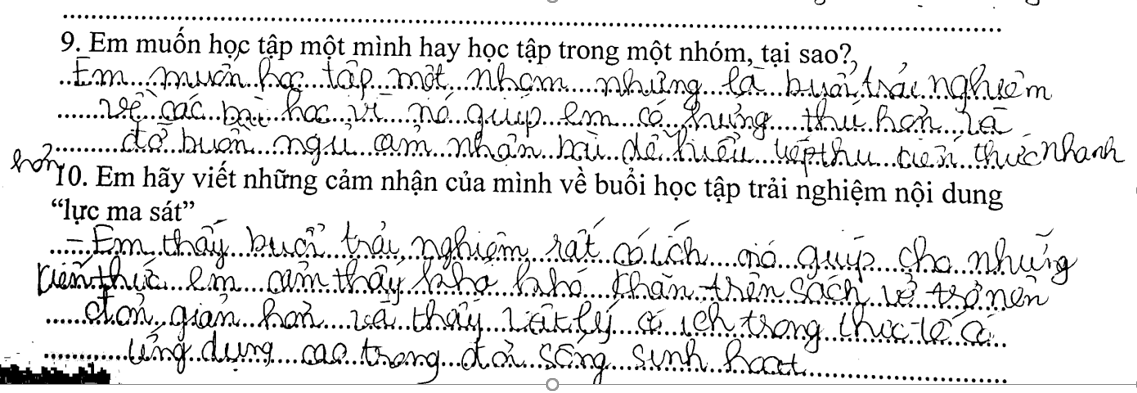 9. Em muốn học tập một mình hay học tập trong một nhóm, tại sao?
Em muốn học tập một nhóm những là buổi trải nghiệm
về các bài học vì nó giúp em có hứng thú hơn và
đỡ buồn ngủ cảm nhận bài dễ hiểu tiếp thu kiến thức nhanh
hơn
10. Em hãy viết những cảm nhận của mình về buổi học tập trải nghiệm nội dung
“lực ma sát”
- Em thấy buổi trải nghiệm rất có ích nó giúp cho những
kiến thức em cảm thấy khá khó khăn trên sách vở trở nên
đơn giản hơn và thấy vật lý có ích trong thực tế có
ứng dụng cao trong đời sống sinh hoạt